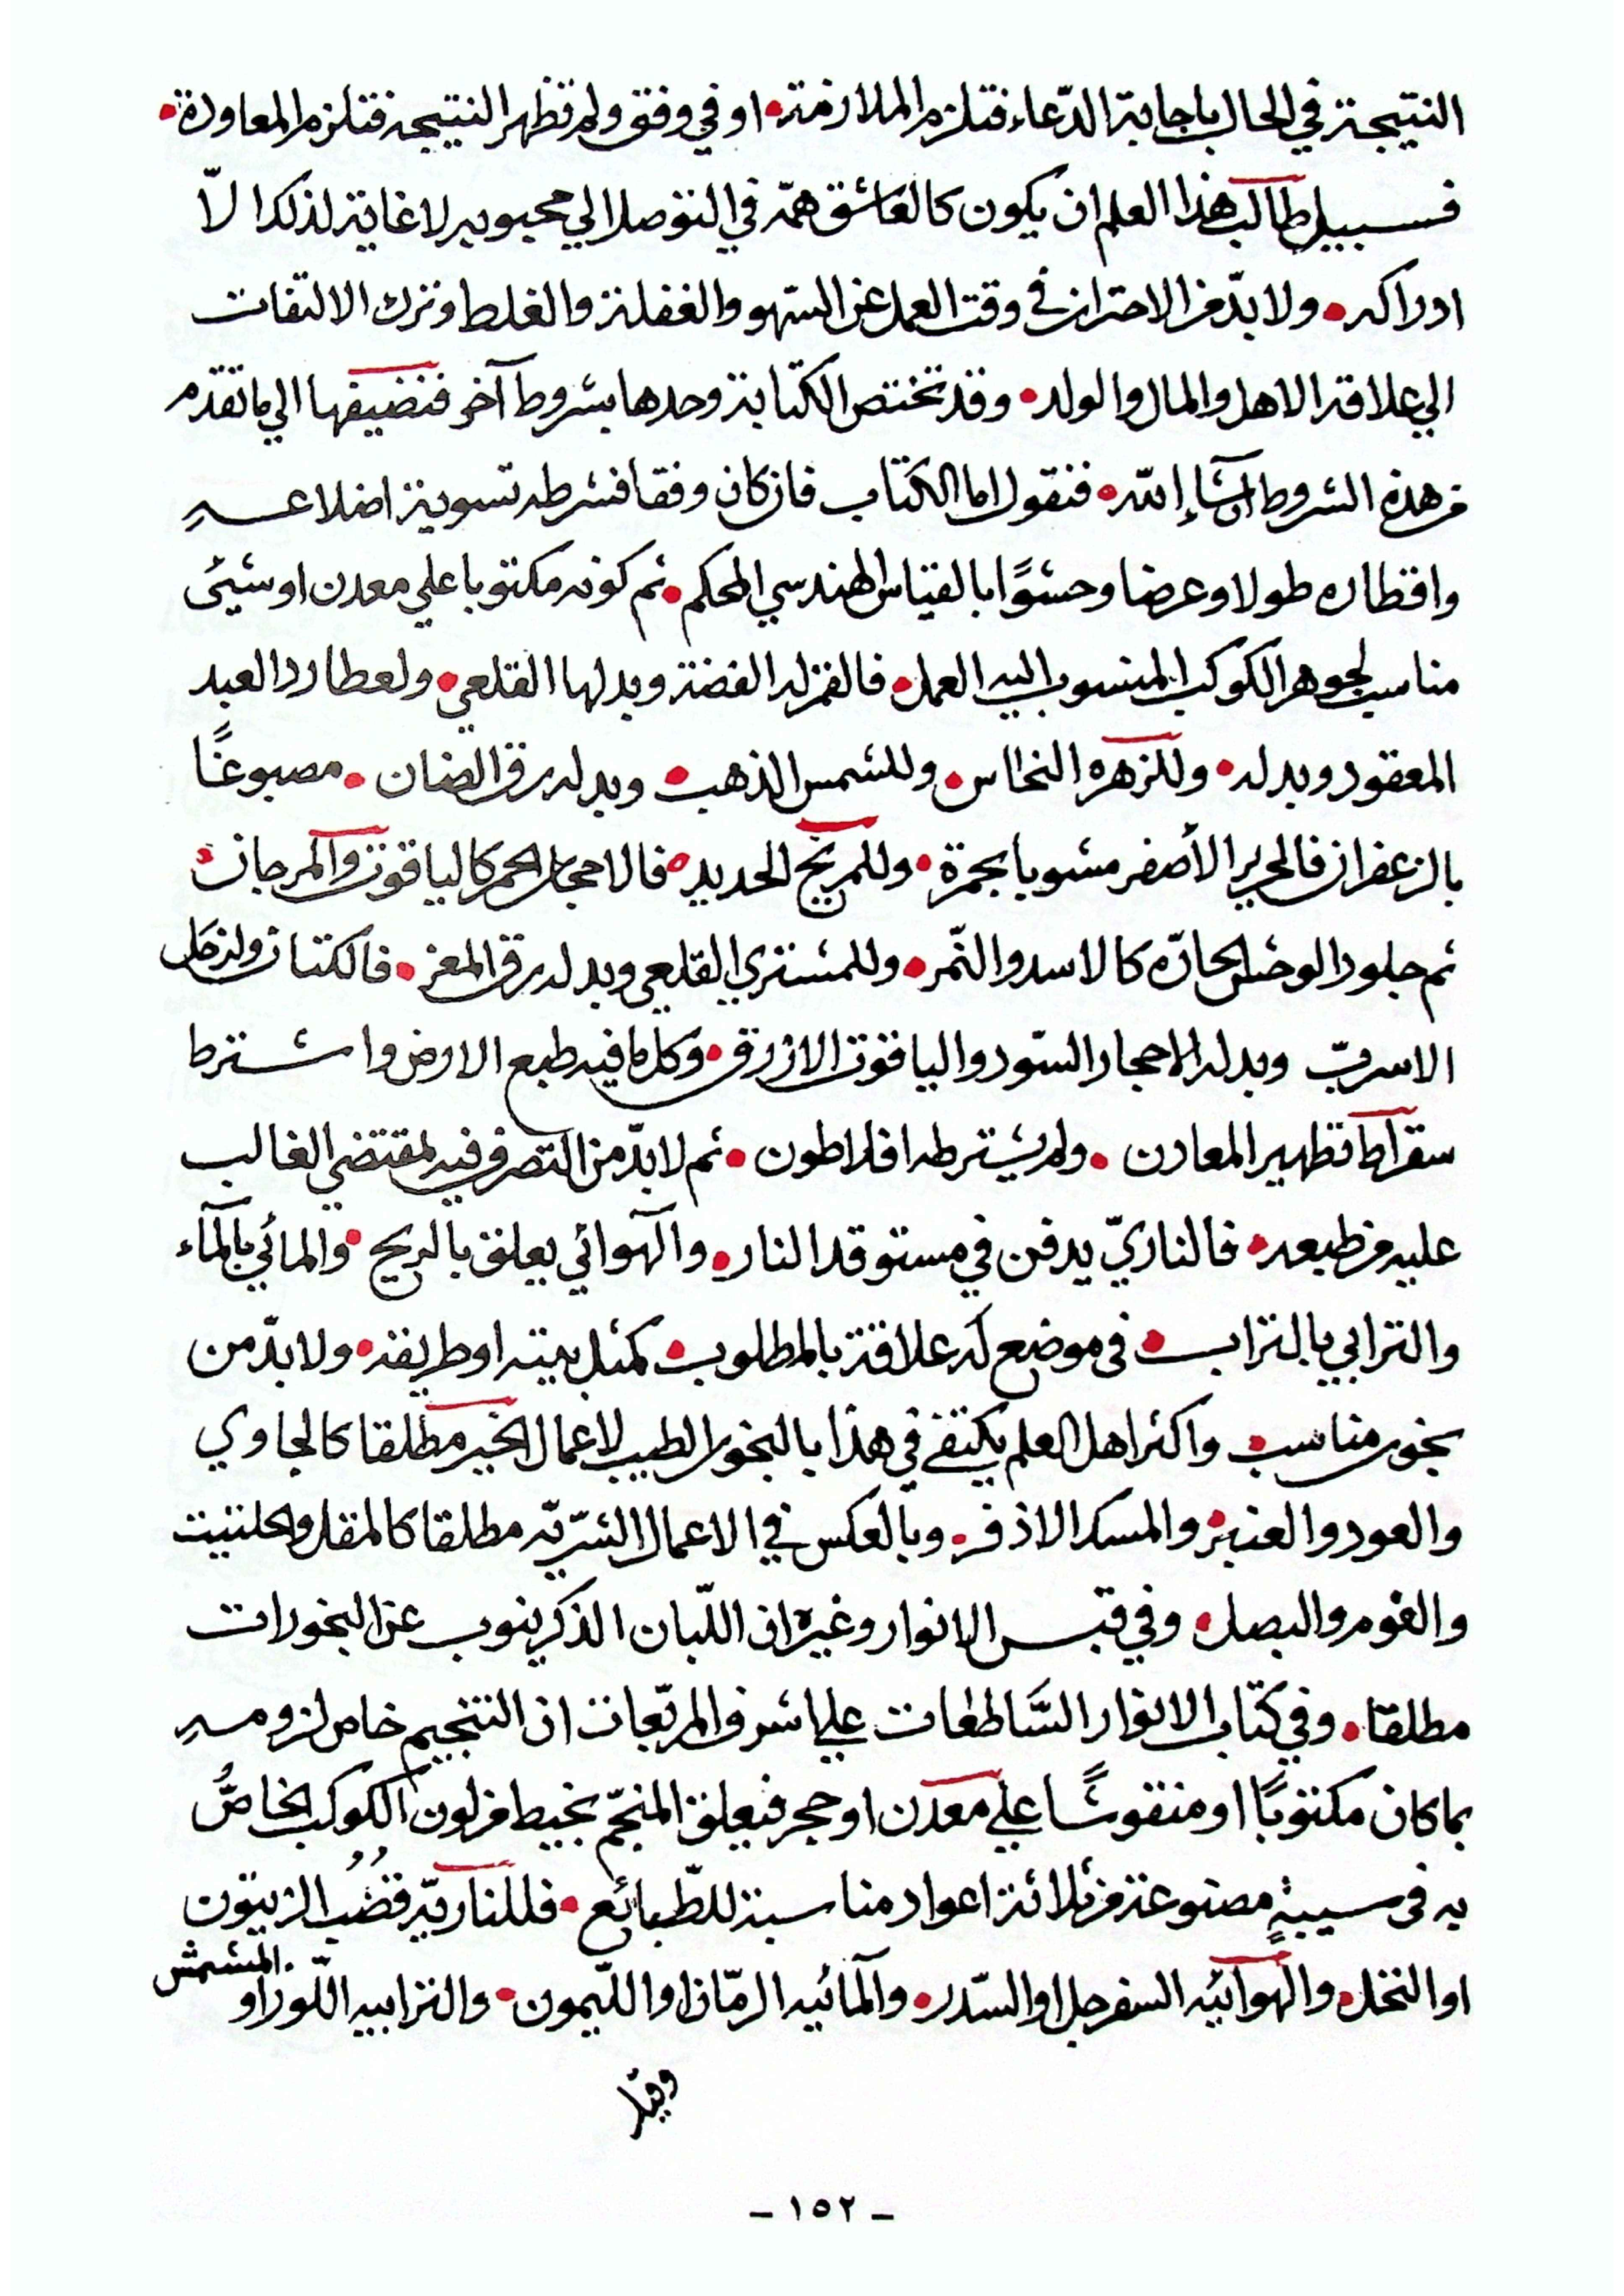 النتيجة في الحال باجابة الدّعاء فتلزم الملازمة • او في وفق ولم تظهر النتيجه فتلزم المعاودة •
فسبيل طالب هذا العلم ان يكون كالعاشق همّه في التوصل الي محبوبه لا غاية لذلك الاّ
ادراكه • ولا بدّ من الاحتراز في وقت العمل عن السّهو والغفلة والغلط وترك الالتفات
الي علاقة الاهل والمال والولد • وقد تختص الكتابة وحدها بشروط آخر فنضيفها الي ما تقدم
من هذه الشروط انشآء الله • فنقول اما الكتاب فان كان وفقا فشرطه تسوية اضلاعه
واقطاره طولا وعرضا وحشوًا بالقياس الهندسي المحكم • ثم كونه مكتوبا علي معدن او شيئ
مناسب لجوهر الكوكب المنسوب اليه العمل • فالقمر له الفضة وبدلها القلعي • ولعطارد العبد
المعقود وبدله • وللزهره النحاس • وللشمس الذهب • وبدله رق الضان • مصبوغًا
بالزعفران فالحرير الأصفر مشوبا بحمرة • وللمريخ الحديد • فالاحجار الحمر كالياقوت والمرجان •
ثم جلود الوحش الحادّه كالاسد والنّمر • وللمشتري القلعي وبدله رق المعز • فالكتان ولزحل
الاسربّ وبدله الاحجار السّود والياقوت الازرق • وكل ما فيه طبع الارض واشترط
سقراط تطهير المعادن • ولم يشترطه افلاطون • ثم لا بدّ من التصرف فيه بمقتضي الغالب
عليه من طبعه • فالناريّ يدفن في مستوقد النار • والهوائي يعلق بالريح • والمائي بالمآء
والترابي بالتراب • في موضع له علاقة بالمطلوب • كمثل بيته او طريقه • ولا بدّ من
بخور مناسب • واكثر اهل العلم يكتفي في هذا بالبخور الطيب لاعمال الخير مطلقا كالجاوي
والعود والعنبر • والمسك الاذفر • وبالعكس في الاعمال الشرّيه مطلقا كالمقل والحلتيت
والفوم والبصل • وفي قبس الانوار وغيره ان اللّبان الذكر ينوب عن البخورات
مطلقا • وفي كتاب الانوار السَّاطعات علي اشرف المربّعات ان التنجيم خاص لزومه
بما كان مكتوبًا او منقوشًا علي معدن او حجر فيعلق المنجّم بخيط من لون الكوكب الخاصُّ
به في سيبةٍ مصنوعة من ثلاثة اعواد مناسبة للطّبائع • فللناريّه قضُبُ الزيتون
او النخل • والهوائيه السفرجل او السّدر • والمائيه الرمّان او اللّيمون • والترابيه اللّوز او المشمش
وقيل
– ١٥٢ –